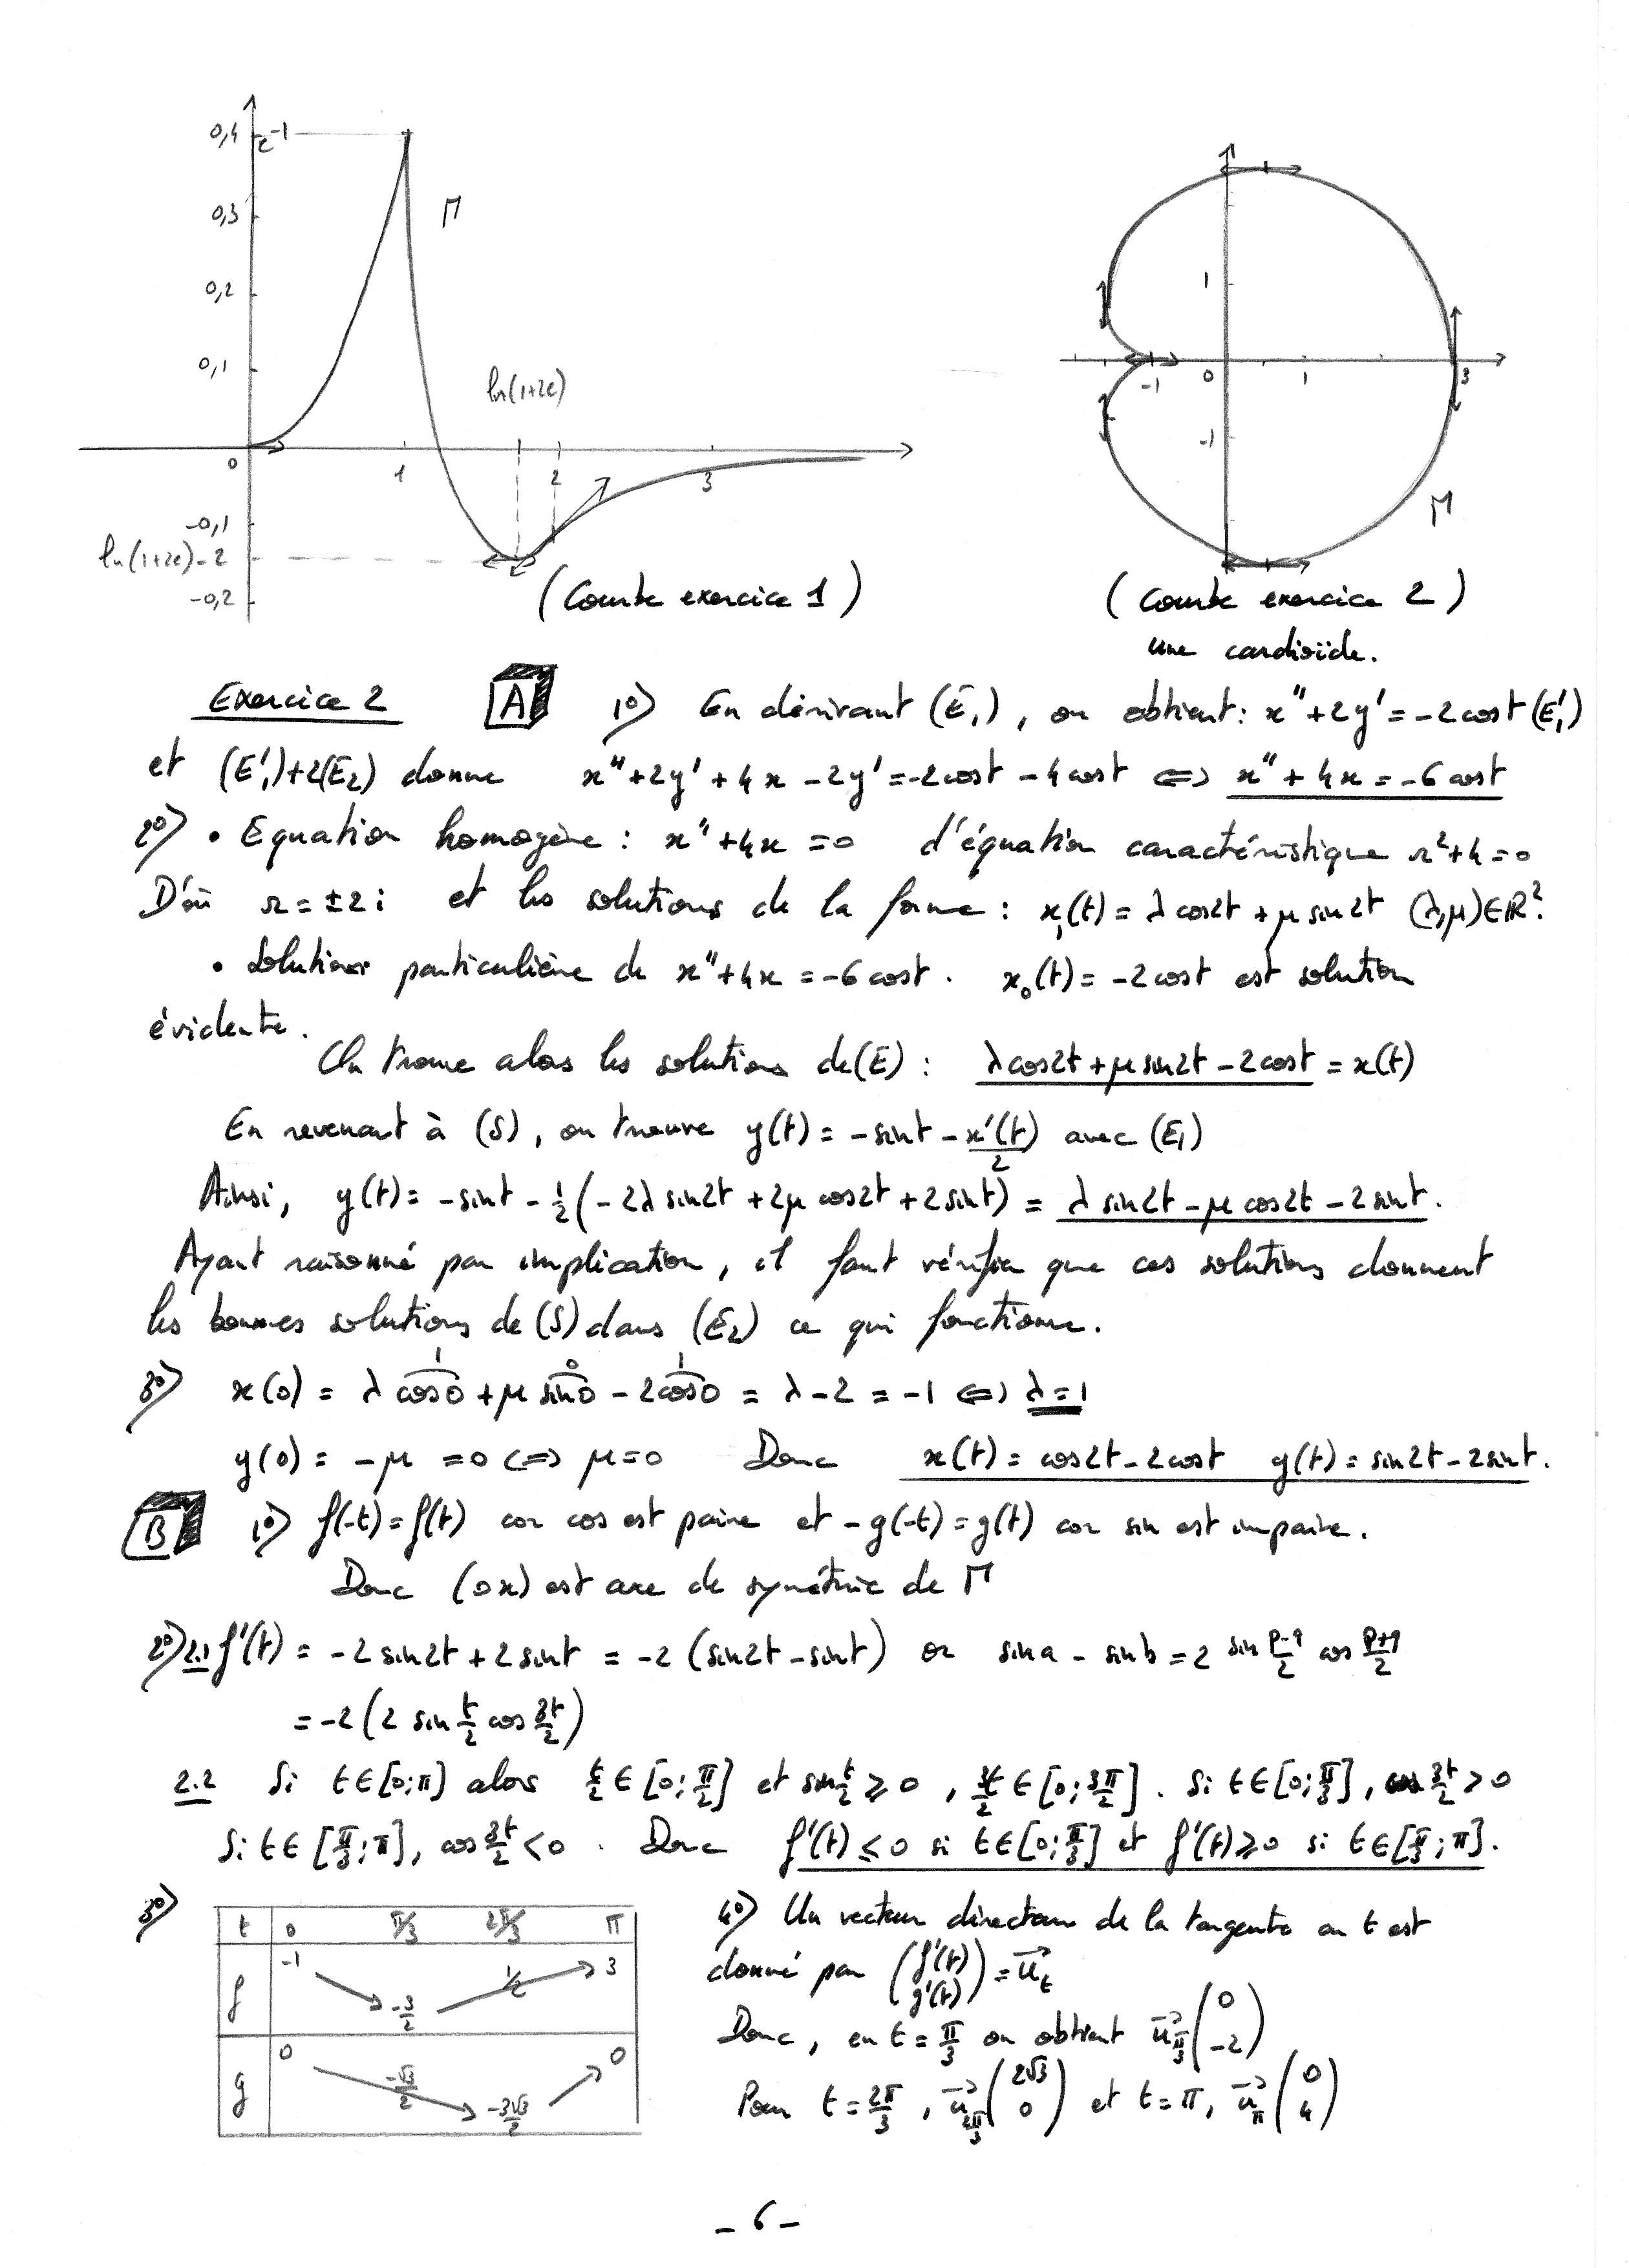 0,4
e⁻¹
0,3
Γ
0,2
0,1
ln(1+2e)
0
1
2
3
-0,1
ln(1+2e)-2
-0,2
(Courbe exercice 1)
1
-1
0
1
3
-1
Γ
(Courbe exercice 2)
une cardioïde.
Exercice 2 A 1°) En dérivant (E₁), on obtient: x"+2y'=-2cost (E'₁)
et (E'₁)+2(E₂) donne x"+2y'+4x-2y'=-2cost-4cost ⇔ x"+4x=-6cost
2°) • Equation homogène : x"+4x=0 d'équation caractéristique r²+4=0
D'où r=±2i et les solutions de la forme : x₁(t)=λcos2t+μsin2t (λ,μ)∈ℝ².
• Solution particulière de x"+4x=-6cost. x₀(t)=-2cost est solution
évidente.
On trouve alors les solutions de (E) : λcos2t+μsin2t-2cost = x(t)
En revenant à (S), on trouve y(t)=-sint-x'(t)/2 avec (E₁)
Ainsi, y(t)=-sint-½(-2λsin2t+2μcos2t+2sint) = λsin2t-μcos2t-2sint.
Ayant raisonné par implication, il faut vérifier que ces solutions donnent
les bonnes solutions de (S) dans (E₂) ce qui fonctionne.
1 0 1
3°) x(0) = λcos0+μsin0-2cos0 = λ-2 = -1 ⇔ λ=1
y(0) = -μ = 0 ⇔ μ=0 Donc x(t)=cos2t-2cost y(t)=sin2t-2sint.
B 1°) f(-t)=f(t) car cos est paire et -g(-t)=g(t) car sin est impaire.
Donc (Ox) est axe de symétrie de Γ
2°) 2.1 f'(t) = -2sin2t+2sint = -2(sin2t-sint) or sina-sinb=2 sin (p-q)/2 cos (p+q)/2
= -2(2 sin t/2 cos 3t/2)
2.2 Si t∈[0;π] alors t/2∈[0;π/2] et sin t/2 ≥ 0, 3t/2∈[0;3π/2]. Si t∈[0;π/3], cos 3t/2 > 0
Si t∈[π/3;π], cos 3t/2 < 0. Donc f'(t)≤0 si t∈[0;π/3] et f'(t)≥0 si t∈[π/3;π].
3°)
t 0 π/3 2π/3 π
f -1 -3/2 1/2 3
g 0 -√3/2 -3√3/2 0
4°) Un vecteur directeur de la tangente en t est
donné par (f'(t) g'(t)) = u⃗_t
Donc, en t=π/3 on obtient u⃗_π/3 (0 -2)
Pour t=2π/3, u⃗_2π/3 (2√3 0) et t=π, u⃗_π (0 4)
- 6 -